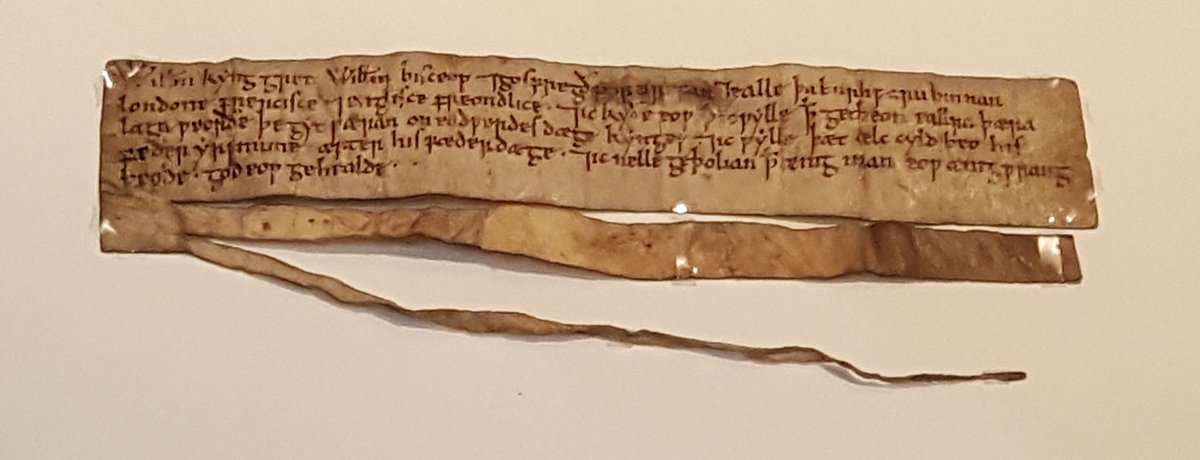 Will'm kyng gret Will'm bisceop ⁊ gosfregð portirefan ⁊ ealle þa burhwaru binnan
londone frencisce ⁊ englisce freondlice · ⁊ ic kyðe eow þ ic wylle þ get beon eallra þæra
laga weorðe þe gyt wæran on eadwerdes dæge kynges · ⁊ ic wylle þæt ælc cyld beo his
fæder yrfnume æfter his fæder dæge · ⁊ ic nelle geþolian þ ænig man eow ænig wrang
beode · god eow gehealde ·